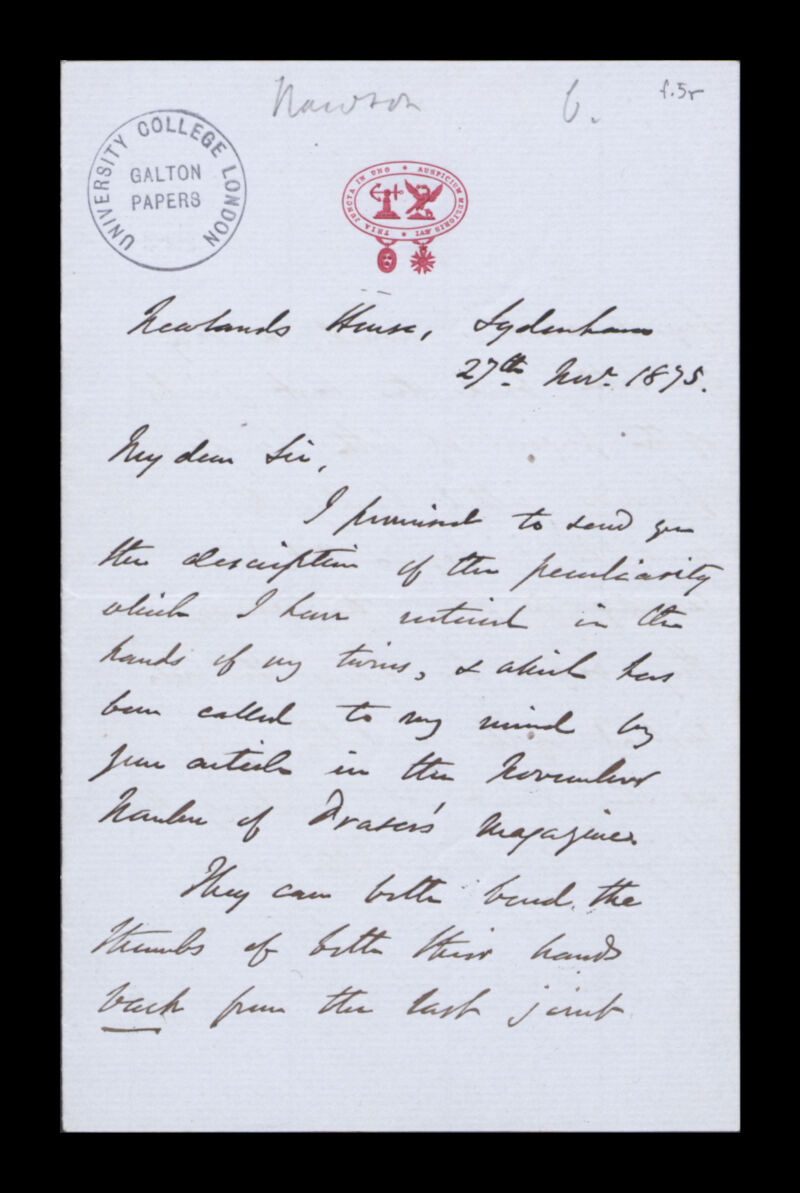 6.
f.5r
UNIVERSITY COLLEGE LONDON
GALTON
PAPERS
TRIA JUNCTA IN UNO * AUSPICIUM MELIORIS ÆVI *
Newlands House, Sydenham
27th Novr. 1875.
My dear Sir,
I promised to send you
the description of the peculiarity
which I have noticed in the
hands of my twins, & which has
been called to my mind by
your article in the November
Number of Fraser's Magazine.
They can both bend the
thumbs of both their hands
back from the last joint